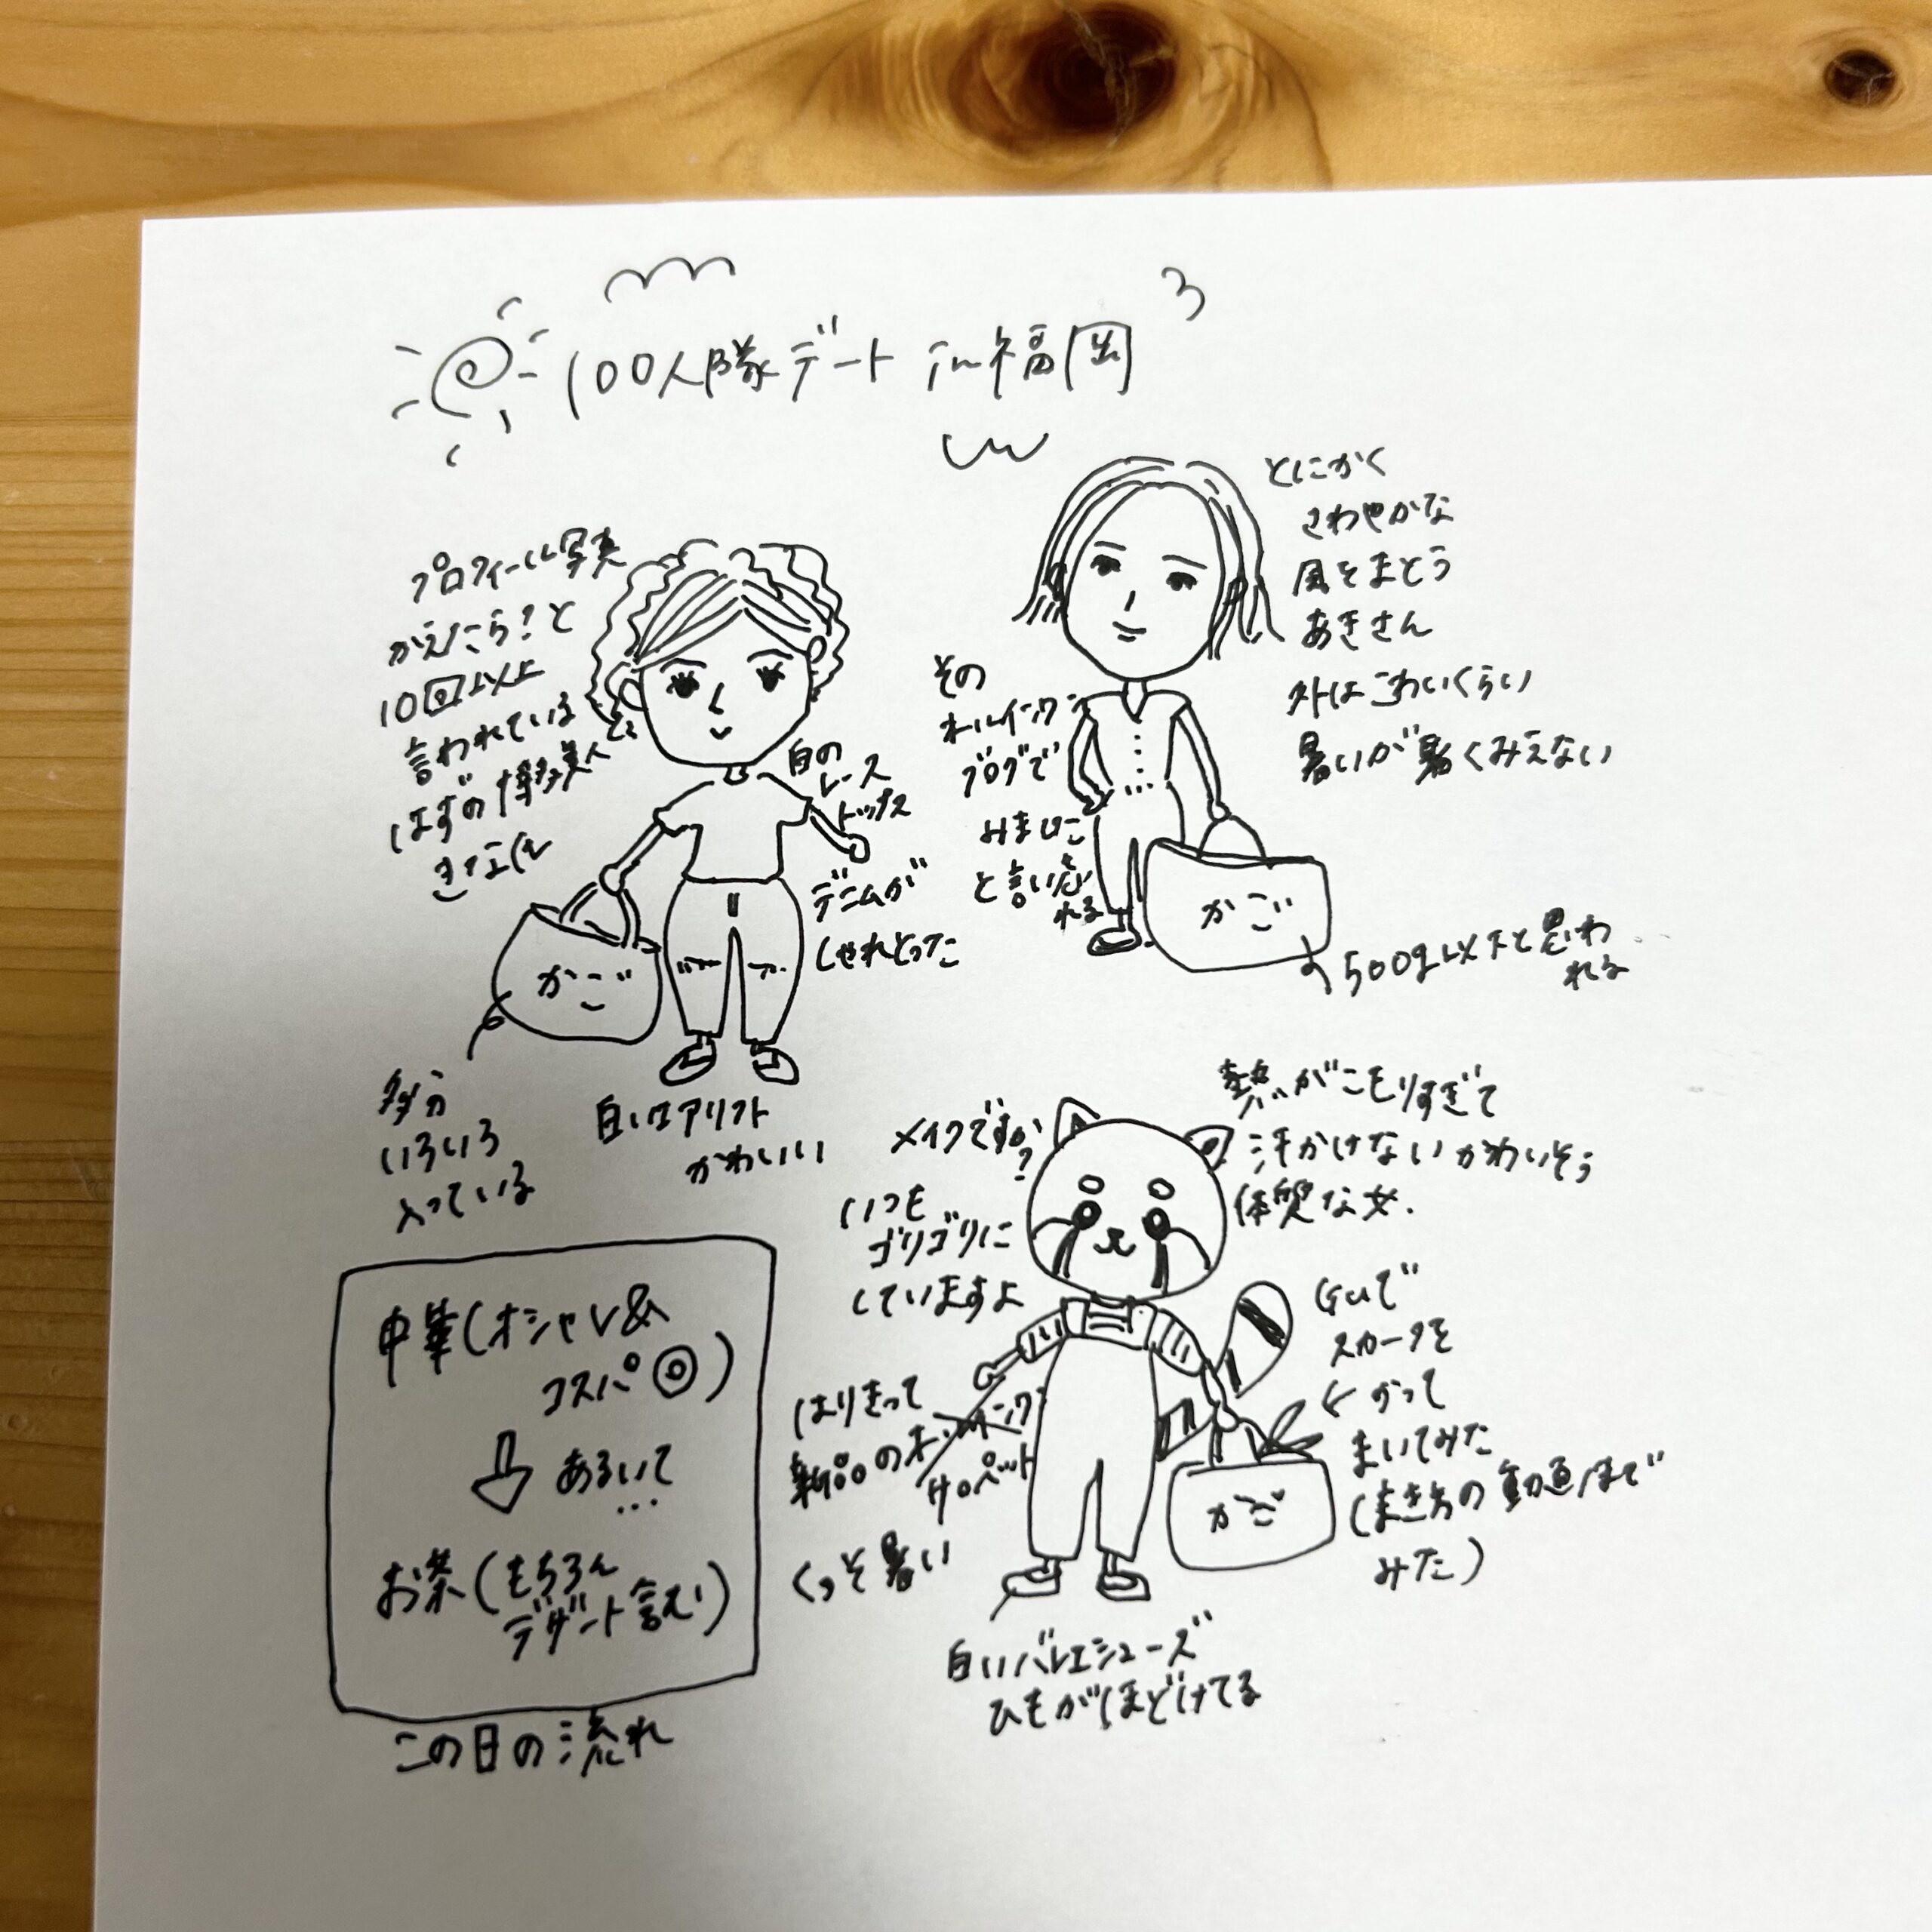 100人隊デート in 福岡
プロフィール写真
かえたら?と
10回以上
言われている
はずの博多美人
白の
レース
トップス
デニムが
しゃれとった
かご
多分
いろいろ
入っている
白い
かわいい
とにかく
さわやかな
風をまとう
あきさん
外はこわいくらい
暑いが暑くみえない
その
オールインワン
ブログで
みました
と言い忘
れる
かご
500g以下と思わ
れる
メイクですか
?
いつも
ゴリゴリに
していますよ
熱がこもりすぎて
汗かけないかわいそう
体質な女.
GUで
スカーフを
かって
まいてみた
(まき方の動画まで
みた)
はりきって
新品のオールインワン
サロペット
くっそ暑い
かご
白いバレエシューズ
ひもがほどけてる
中華(オシャレ&
コスパ◎)
⇩ あるいて
...
お茶(もちろん
デザート含む)
この日の流れ